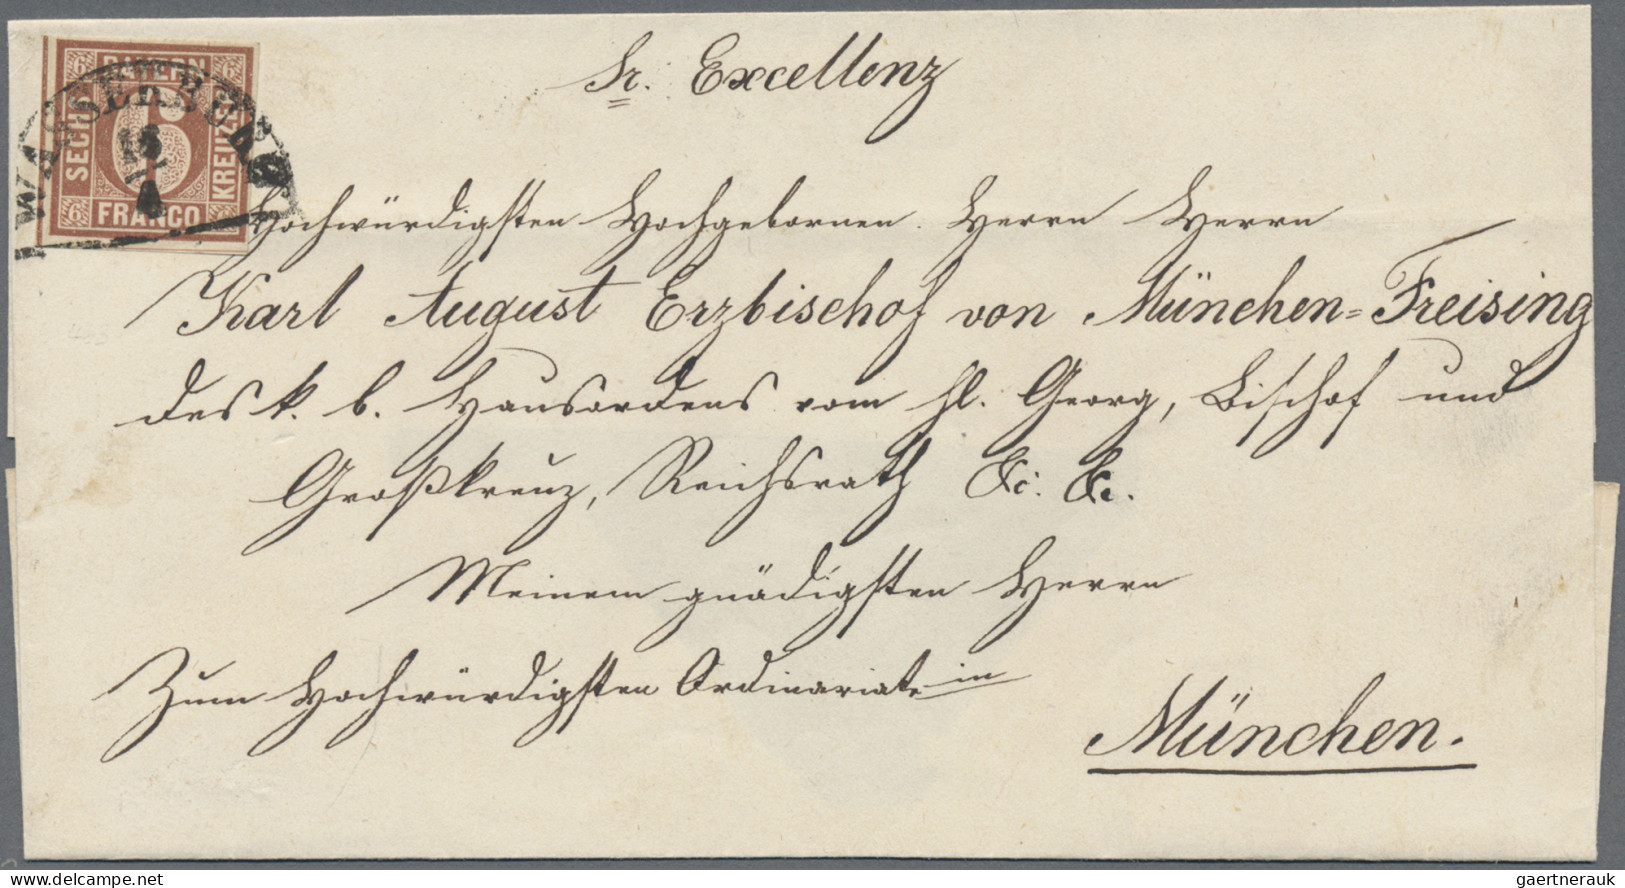 Sr. Excellenz
BAYERN
6 6
SECHS
6
KREUZER
6 6
FRANCO
WASSERBURG
Hochwürdigsten Hochgebornen Herrn Herrn
Karl August Erzbischof von München=Freising
des k. b. Hausordens vom hl. Georg, Bischof und
Großkreuz, Reichsrath &c. &c.
Meinem gnädigsten Herrn
Zum Hochwürdigsten Ordinariate in
München.
delcampe.net
gaertnerauk